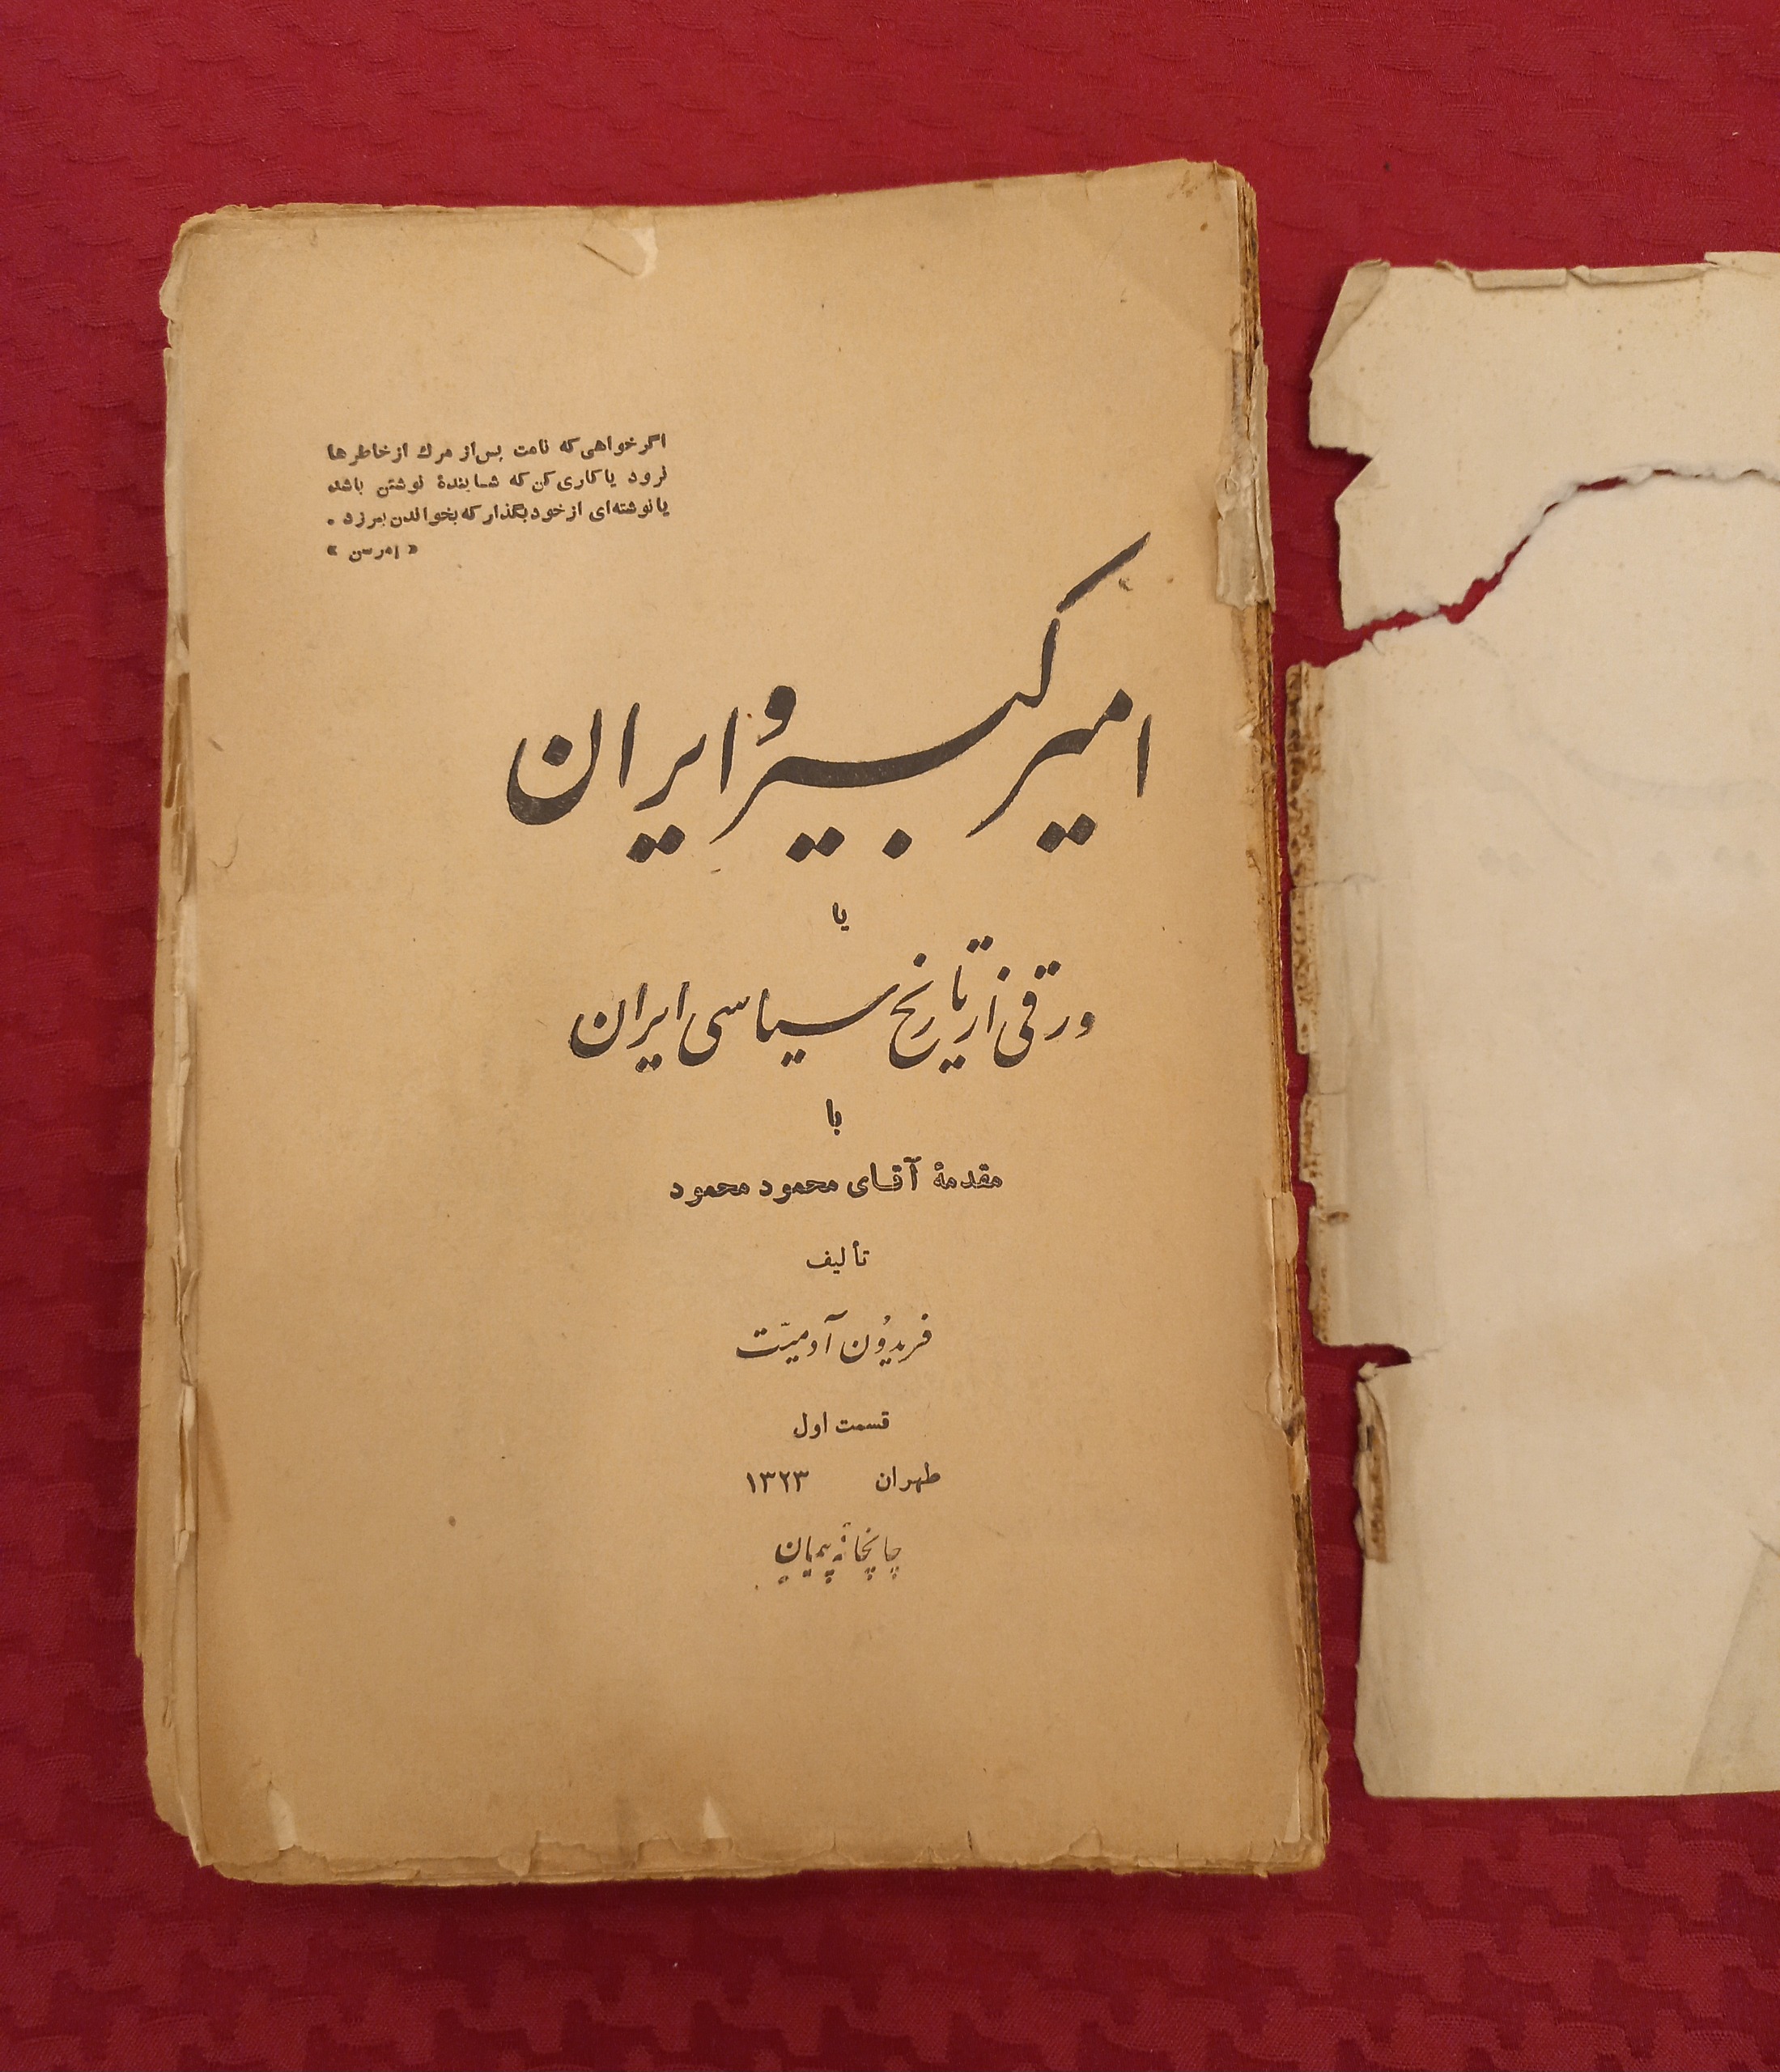 اگر خواهی که نامت پس از مرگ از خاطرها
نرود یا کاری کن که شایندهٔ نوشتن باشد
یا نوشته‌ای از خود بگذار که بخواندن بیرزد .
« امرسن »
امیرکبیر و ایران
یا
ورقی از تاریخ سیاسی ایران
با
مقدمهٔ آقای محمود محمود
تألیف
فریدون آدمیّت
قسمت اول
طهران ۱۳۲۳
چاپخانهٔ پیمان